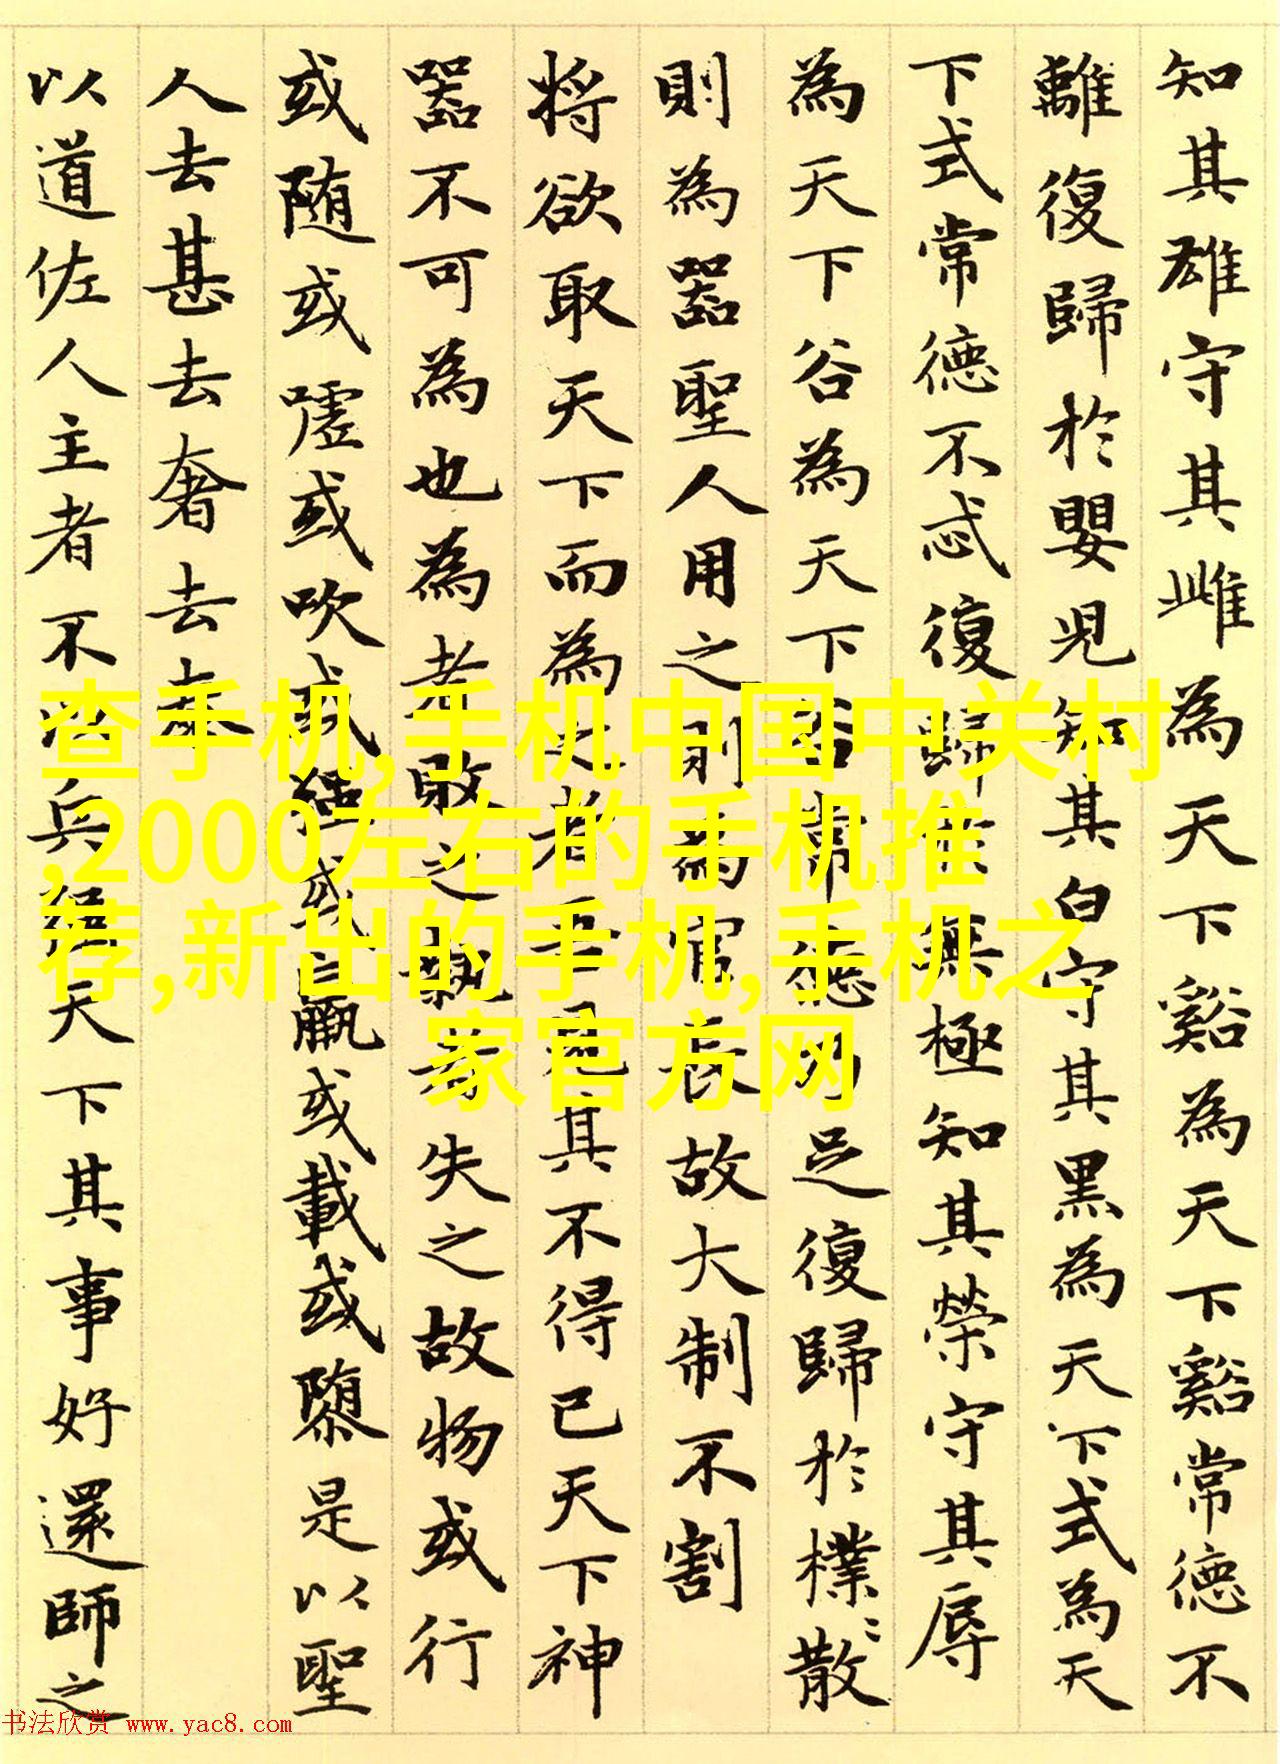 知其雄守其雌為天下谿為天下谿常德不
離復歸於嬰兒知其白守其黑為天下式為天
下式常德不忒復歸於無極知其榮守其辱
為天下谷為天下谷常德乃足復歸於樸〻散
則為器聖人用之則為官長故大制不割
將欲取天下而為之者吾見其不得已天下神
器不可為也為者敗之執者失之故物或行
或随或嘘或吹或强或羸或載或隳是以聖
人去甚去奢去泰
以道佐人主者不以兵强天下其事好還師之
查手机,手机中国中关村
,2000左右的手机推
荐,新出的手机,手机之
家官方网
书法欣赏 www.yac8.com